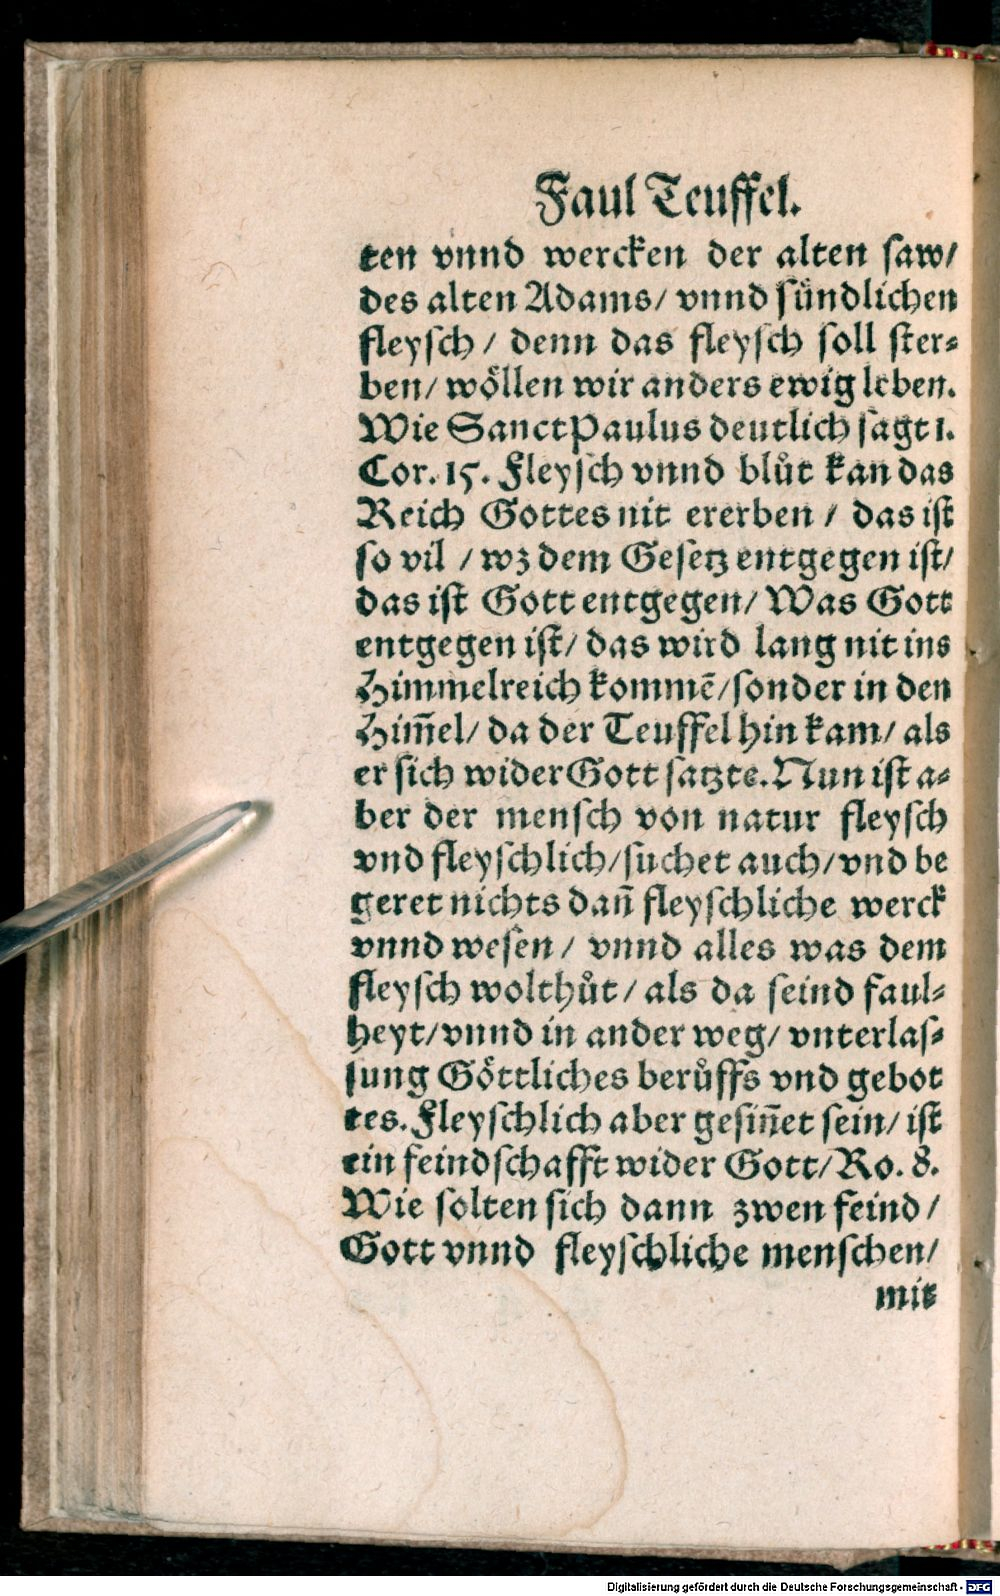 Faul Teuffel.
ten vnnd wercken der alten saw/
des alten Adams/ vnnd sündlichen
fleysch/ denn das fleysch soll ster⸗
ben/ wöllen wir anders ewig leben.
Wie Sanct Paulus deutlich sagt 1.
Cor. 15. Fleysch vnnd blůt kan das
Reich Gottes nit ererben/ das ist
so vil/ wz dem Gesetz entgegen ist/
das ist Gott entgegen/ Was Gott
entgegen ist/ das wird lang nit ins
Himmelreich kommē/ sonder in den
Him̄el/ da der Teuffel hin kam/ als
er sich wider Gott satzte. Nun ist a⸗
ber der mensch von natur fleysch
vnd fleyschlich/ suchet auch/ vnd be
geret nichts dan̄ fleyschliche werck
vnnd wesen/ vnnd alles was dem
fleysch wolthůt/ als da seind faul⸗
heyt/ vnnd in ander weg/ vnterlas⸗
sung Göttliches berůffs vnd gebot
tes. Fleyschlich aber gesin̄et sein/ ist
ein feindschafft wider Gott/ Ro. 8.
Wie solten sich dann zwen feind/
Gott vnnd fleyschliche menschen/
mit
Digitalisierung gefördert durch die Deutsche Forschungsgemeinschaft - DFG